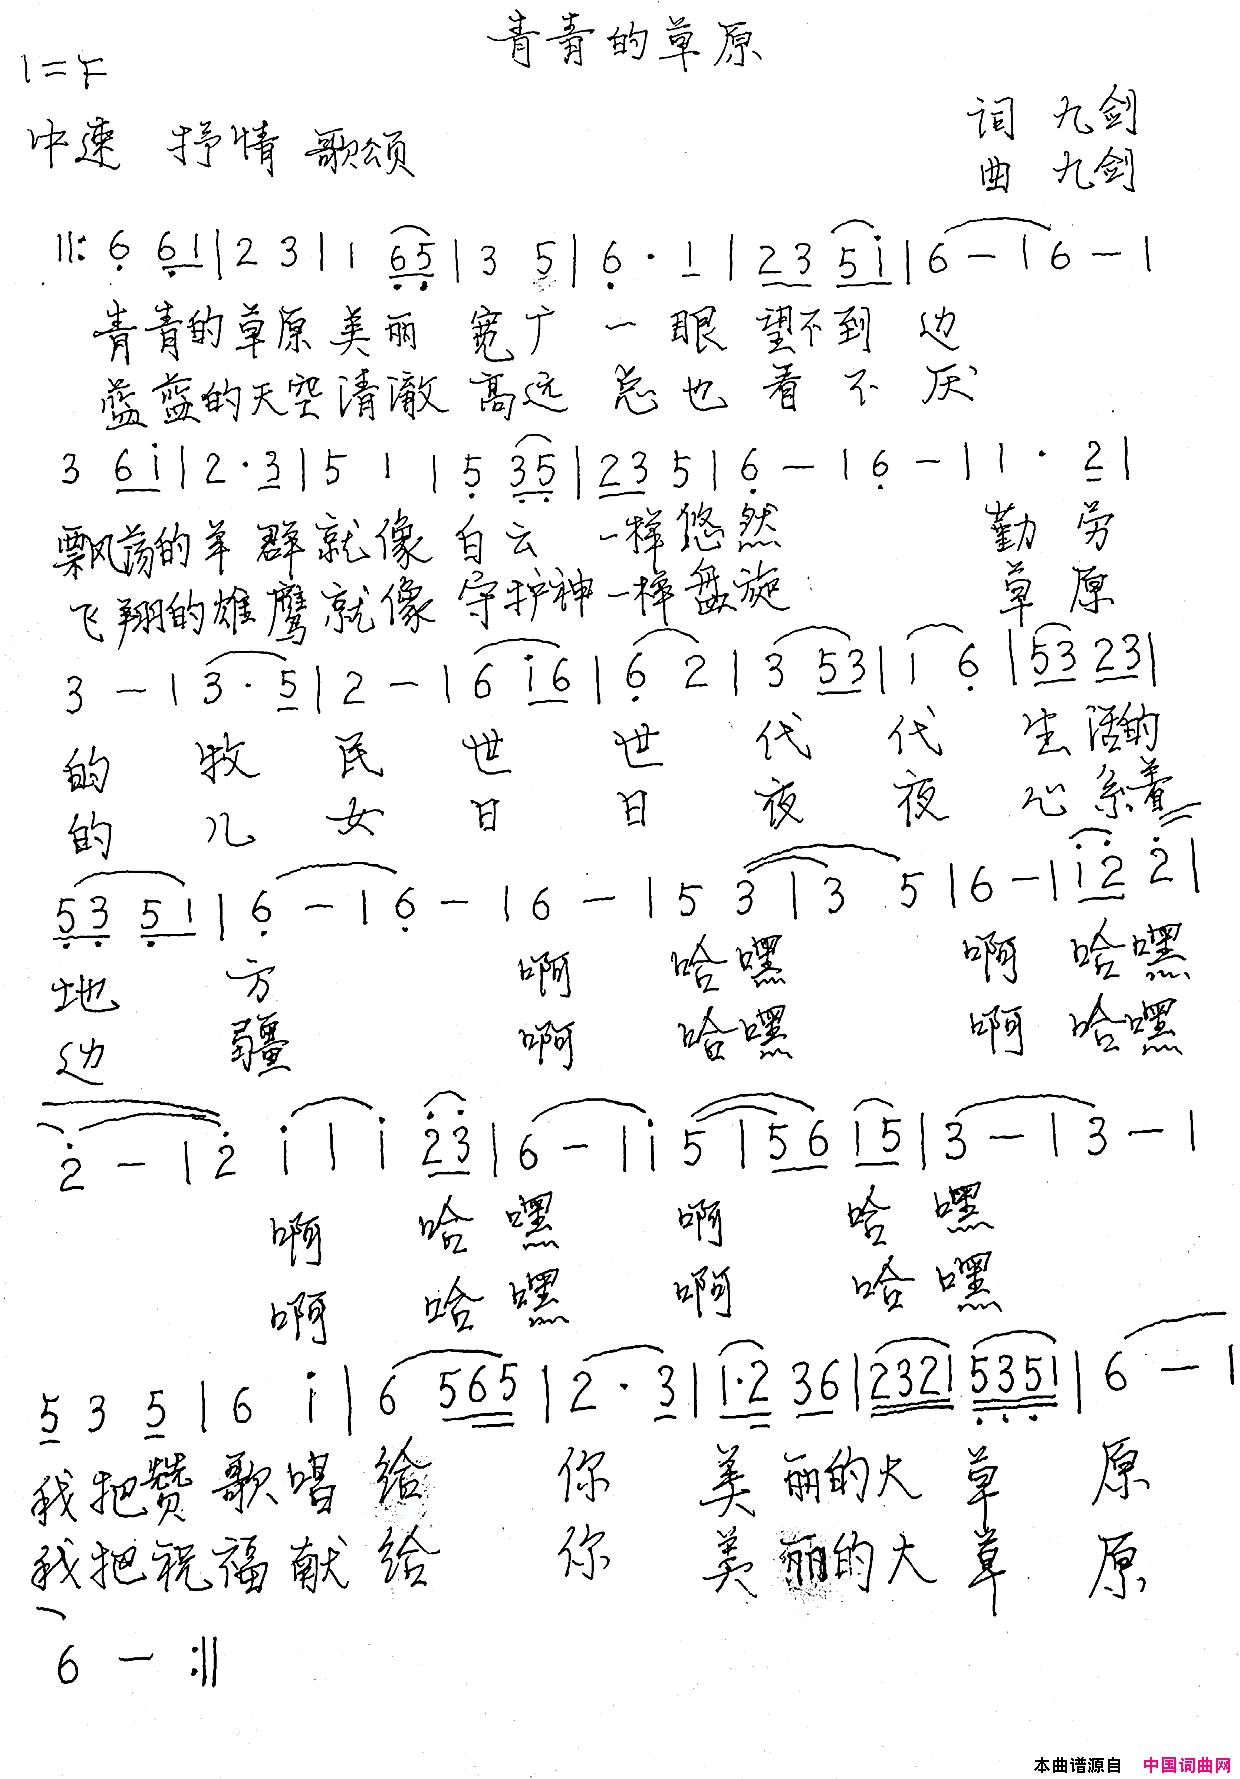 青青的草原
1=F
中速 抒情 歌颂
词 九剑
曲 九剑
||: 6 6 1 | 2 3 | 1 6 5 | 3 5 | 6 · 1 | 2 3 5 i | 6 — | 6 — |
青青的草原美丽 宽广 一眼望不到边
蓝蓝的天空清澈高远 总也看不厌
3 6 i | 2 · 3 | 5 1 | 5 3 5 | 2 3 5 | 6 — | 6 — | 1 · 2 |
飘荡的羊群就像白云 一样悠然 勤劳
飞翔的雄鹰就像守护神一样盘旋 草原
3 — | 3 · 5 | 2 — | 6 i 6 | 6 2 | 3 5 3 | 1 6 | 5 3 2 3 |
的 牧民世世代代生活的
的儿女日日夜夜心系着
5 3 5 1 | 6 — | 6 — | 6 — | 5 3 | 3 5 | 6 — | i 2 2 |
地方 啊 哈嘿 啊 哈嘿
边疆 啊 哈嘿 啊 哈嘿
2 — | 2 i | i 2 3 | 6 — | i 5 | 5 6 1 5 | 3 — | 3 — |
啊 哈嘿 啊 哈嘿
啊 哈嘿 啊 哈嘿
5 3 5 | 6 i | 6 5 6 5 | 2 · 3 | 1 · 2 3 6 | 2 3 2 1 5 3 5 1 | 6 — |
我把赞歌唱给 你 美丽的大草原
我把祝福献给 你 美丽的大草原
6 — :||
本曲谱源自 中国词曲网